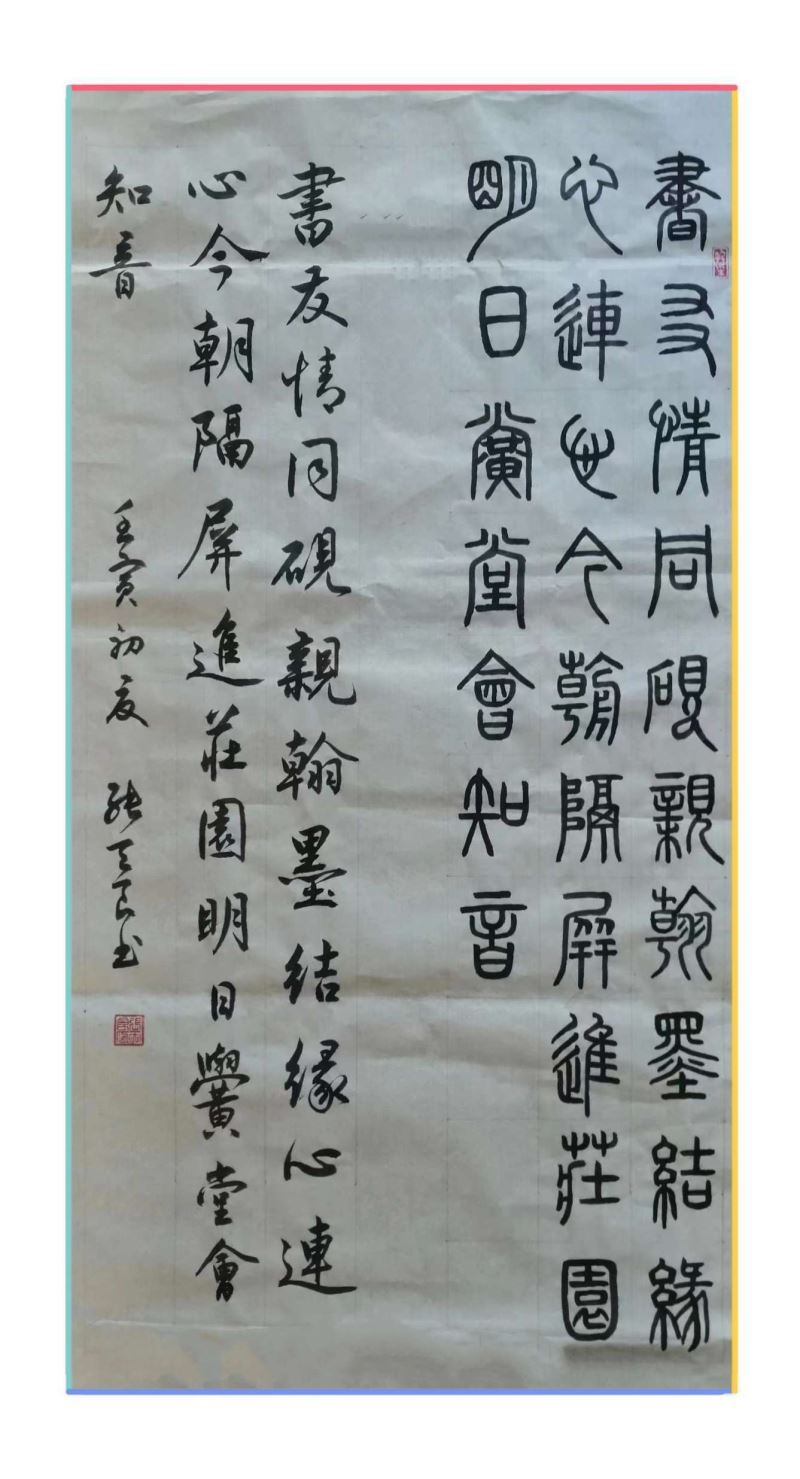 書友情同硯親翰墨結緣
心連心今朝隔屏進莊園
明日黌堂會知音
書友情同硯親翰墨結緣心連
心今朝隔屏進莊園明日黌堂會
知音 壬寅初夏 張天良书